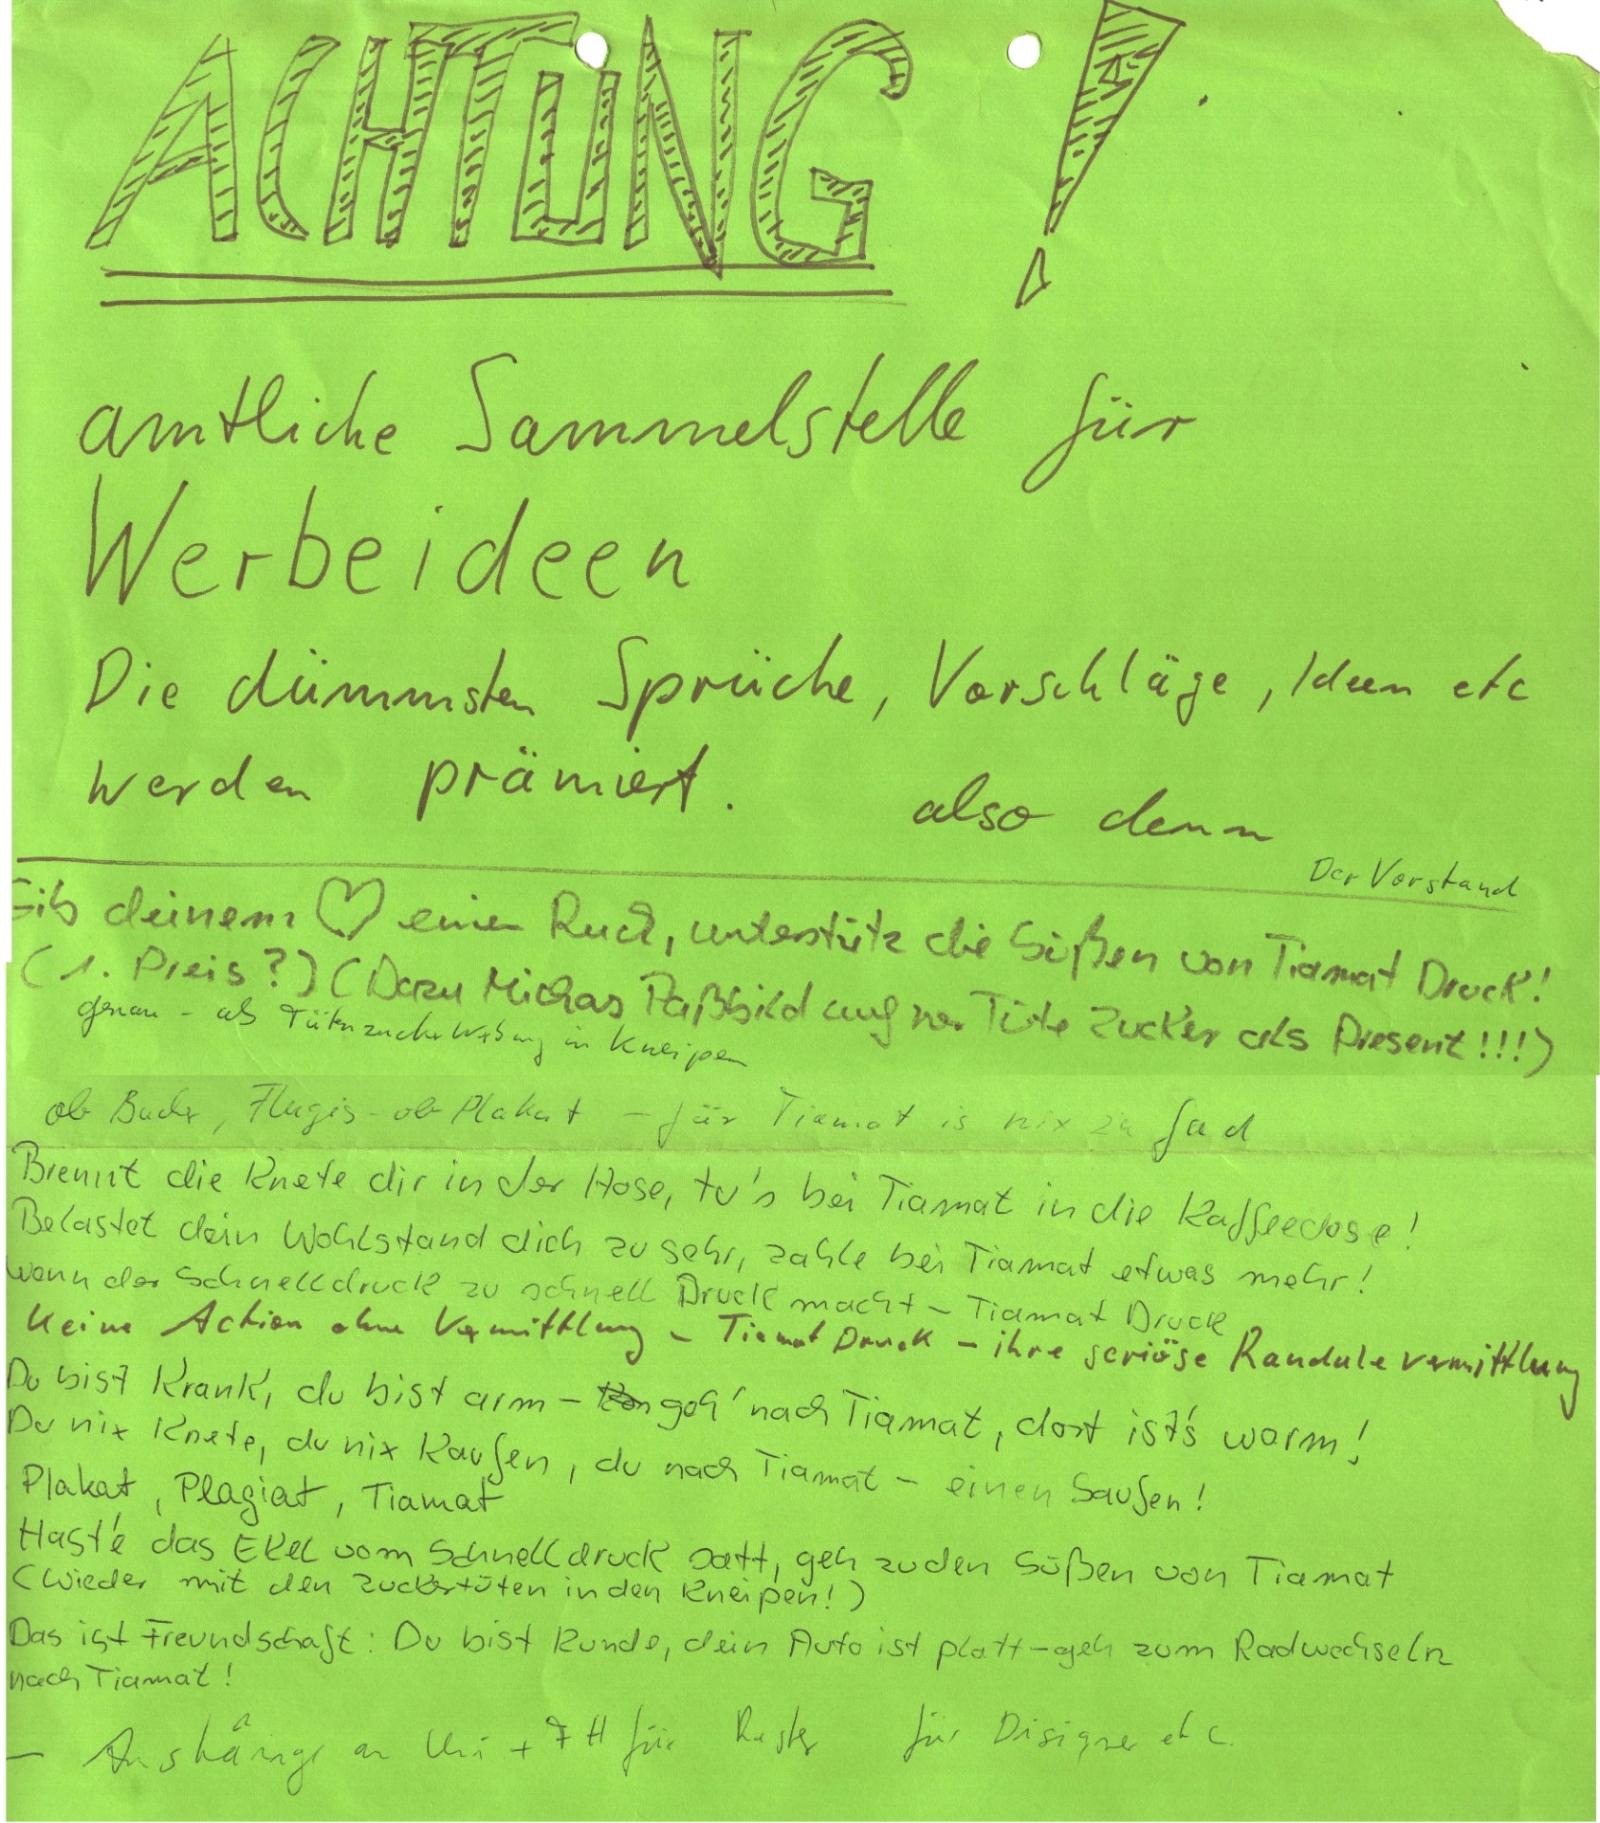 ACHTUNG !
amtliche Sammelstelle für
Werbeideen
Die dümmsten Sprüche, Vorschläge, Ideen etc
werden prämiert. also denn
Der Vorstand
Gib deinem ♡ einen Ruck, unterstütz die Süßen von Tiamat Druck!
(1. Preis?) (Dazu Michas Paßbild auf ner Tüte Zucker als Present!!!)
genau - als Tütenzuckerwerbung in Kneipen
ob Buch, Flugis - ob Plakat - für Tiamat is nix zu fad
Brennt die Knete dir in der Hose, tu's bei Tiamat in die Kaffeedose!
Belastet dein Wohlstand dich zu sehr, zahle bei Tiamat etwas mehr!
Wenn der Schnelldruck zu schnell Druck macht - Tiamat Druck
Keine Action ohne Vermittlung - Tiamat Druck - ihre seriöse Randale vermittlung
Du bist Krank, du bist arm - geh' nach Tiamat, dort ist's warm!
Du nix Knete, du nix Kaufen, du nach Tiamat - einen Saufen!
Plakat, Plagiat, Tiamat
Hast'e das Ekel vom Schnelldruck satt, geh zu den Süßen von Tiamat
(Wieder mit den Zuckertüten in den Kneipen!)
Das ist Freundschaft: Du bist Kunde, dein Auto ist platt - geh zum Radwechseln
nach Tiamat!
- Aushänge an Uni + FH für für Disigner etc.